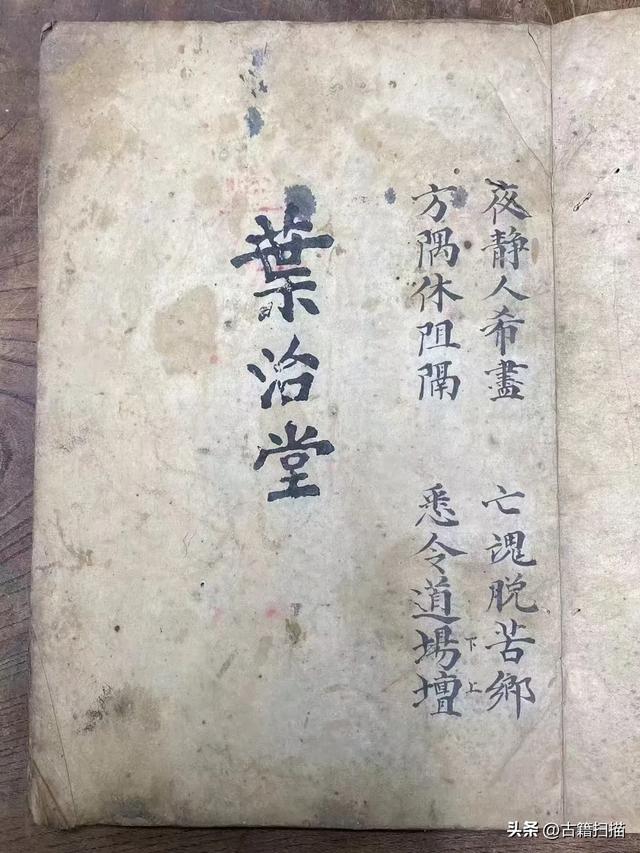 夜靜人希盡 亡魂脱苦鄉
方隅休阻隔 悉令道場壇
下上
葉治堂
头条@古籍扫描